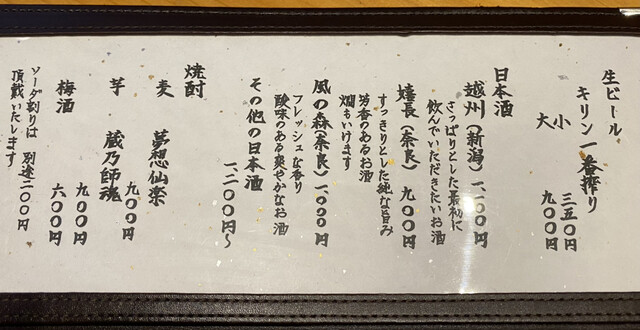 生ビール
キリン一番搾り
小 三五〇円
大 九〇〇円
日本酒
越州(新潟) 一、二〇〇円
さっぱりとした最初に
飲んでいただきたいお酒
嬉長(奈良) 九〇〇円
すっきりとした純な旨み
芳香のあるお酒
燗もいけます
風の森(奈良) 一、〇〇〇円
フレッシュな香り
酸味のある爽やかなお酒
その他の日本酒
一、二〇〇円〜
焼酎
麦 夢想仙楽
九〇〇円
芋 蔵乃師魂
九〇〇円
梅酒 六〇〇円
ソーダ割りは 別途二〇〇円
頂戴いたします